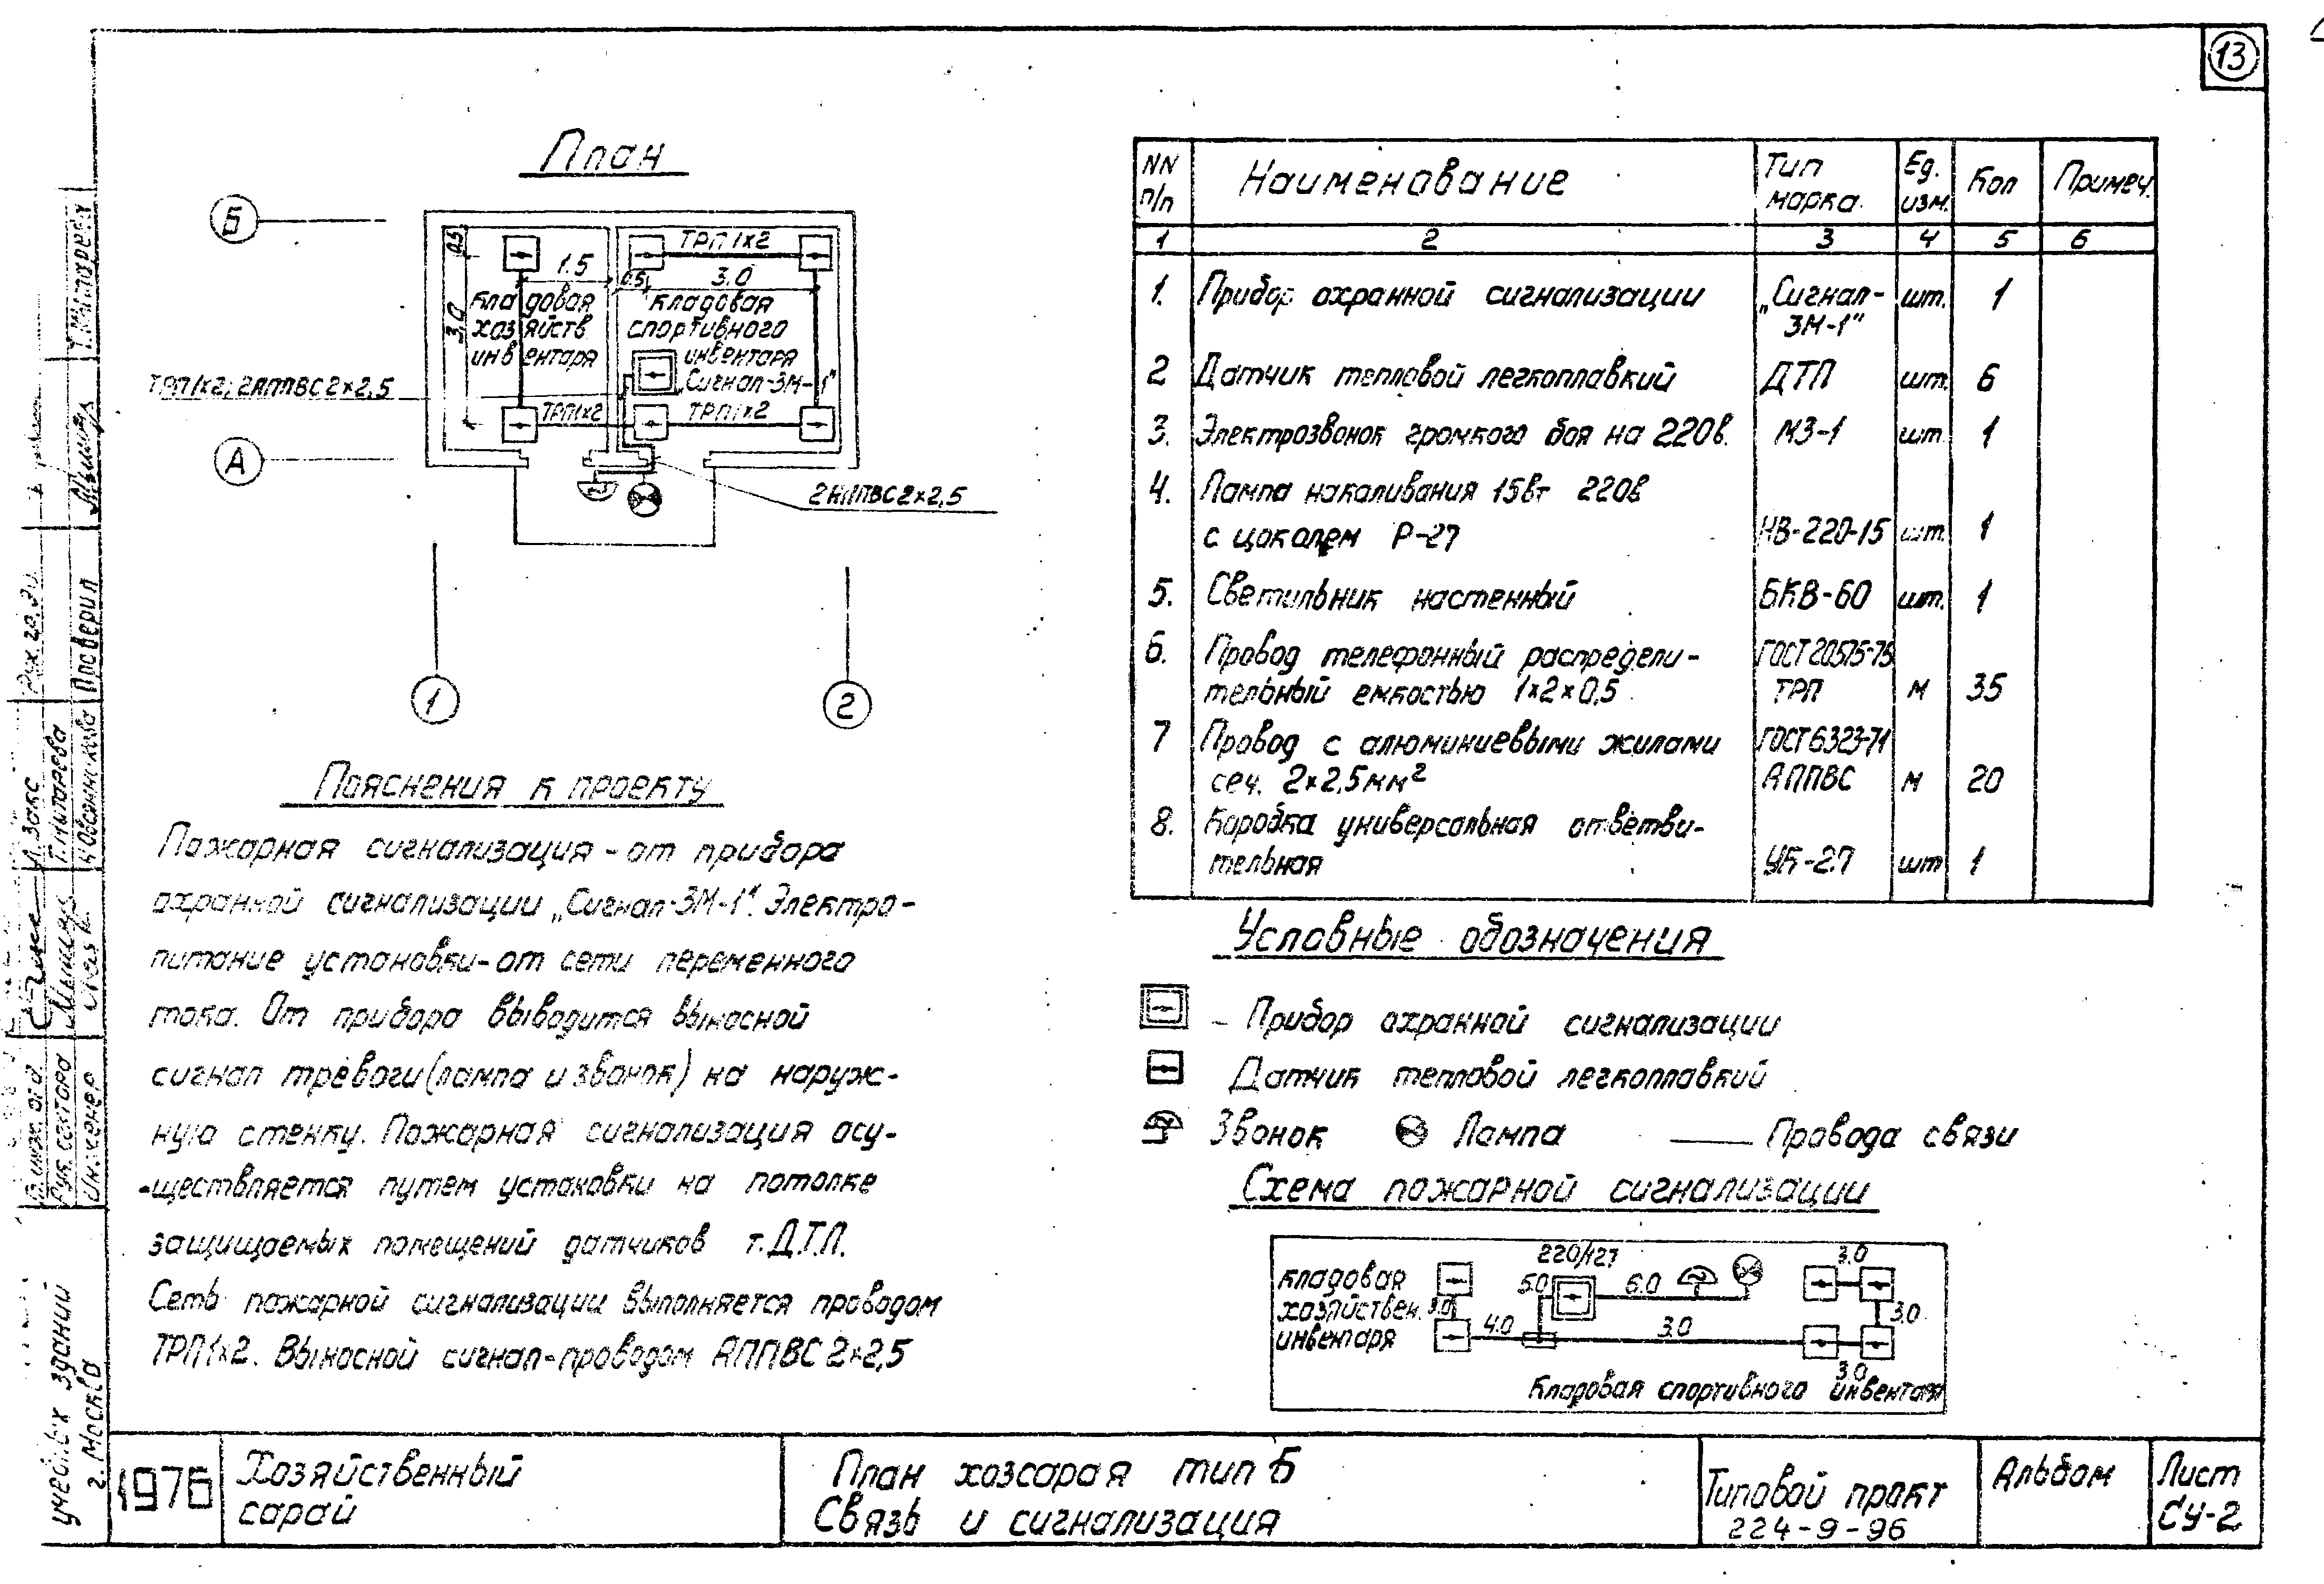 13
План
Б
ТРП 1х2
0.5
1.5
0.5
3.0
3.0
кладовая
хозяйств
инвентаря
кладовая
спортивного
инвентаря
„Сигнал-3М-1"
ТРП1х2; 2АППВС 2х2,5
ТРП1х2
ТРП1х2
А
2АППВС2х2,5
1
2
Пояснения к проекту
Пожарная сигнализация - от прибора
охранной сигнализации „Сигнал-3М-1". Электро-
питание установки-от сети переменного
тока. От прибора выводится выносной
сигнал тревоги (лампа и звонок) на наруж-
ную стенку. Пожарная сигнализация осу-
-ществляется путем установки на потолке
защищаемых помещений датчиков т.Д.Т.Л.
Сеть пожарной сигнализации выполняется проводом
ТРП1х2. Выносной сигнал-проводом АППВС 2х2,5
NN п/п Наименование Тип марка Ед. изм. Кол Примеч.
1 2 3 4 5 6
1. Прибор охранной сигнализации „Сигнал- шт. 1
3М-1"
2 Датчик тепловой легкоплавкий ДТЛ шт. 6
3. Электрозвонок громкого боя на 220в. МЗ-1 шт. 1
4. Лампа накаливания 15вт 220в
с цоколем Р-27 НВ-220-15 шт. 1
5. Светильник настенный БКВ-60 шт. 1
6. Провод телефонный распредели- ГОСТ 20575-75
тельный емкостью 1х2х0,5 ТРП м 35
7 Провод с алюминиевыми жилами ГОСТ 6323-71
сеч. 2х2,5мм² АППВС м 20
8. Коробка универсальная ответви-
тельная УК-2П шт 1
Условные обозначения
- Прибор охранной сигнализации
Датчик тепловой легкоплавкий
Звонок Лампа Провода связи
Схема пожарной сигнализации
220/127
3.0
кладовая
хозяйствен.
инвентаря
3.0
5.0
6.0
4.0
3.0
3.0
3.0
Кладовая спортивного инвентаря
1976
Хозяйственный
сарай
План хозсарая тип Б
Связь и сигнализация
Типовой проект
224-9-96
Альбом
Лист
СУ-2
учебных зданий
г. Москва
Рук. сектора
Инженер
Л. Закс
Т. Митарева
Проверил